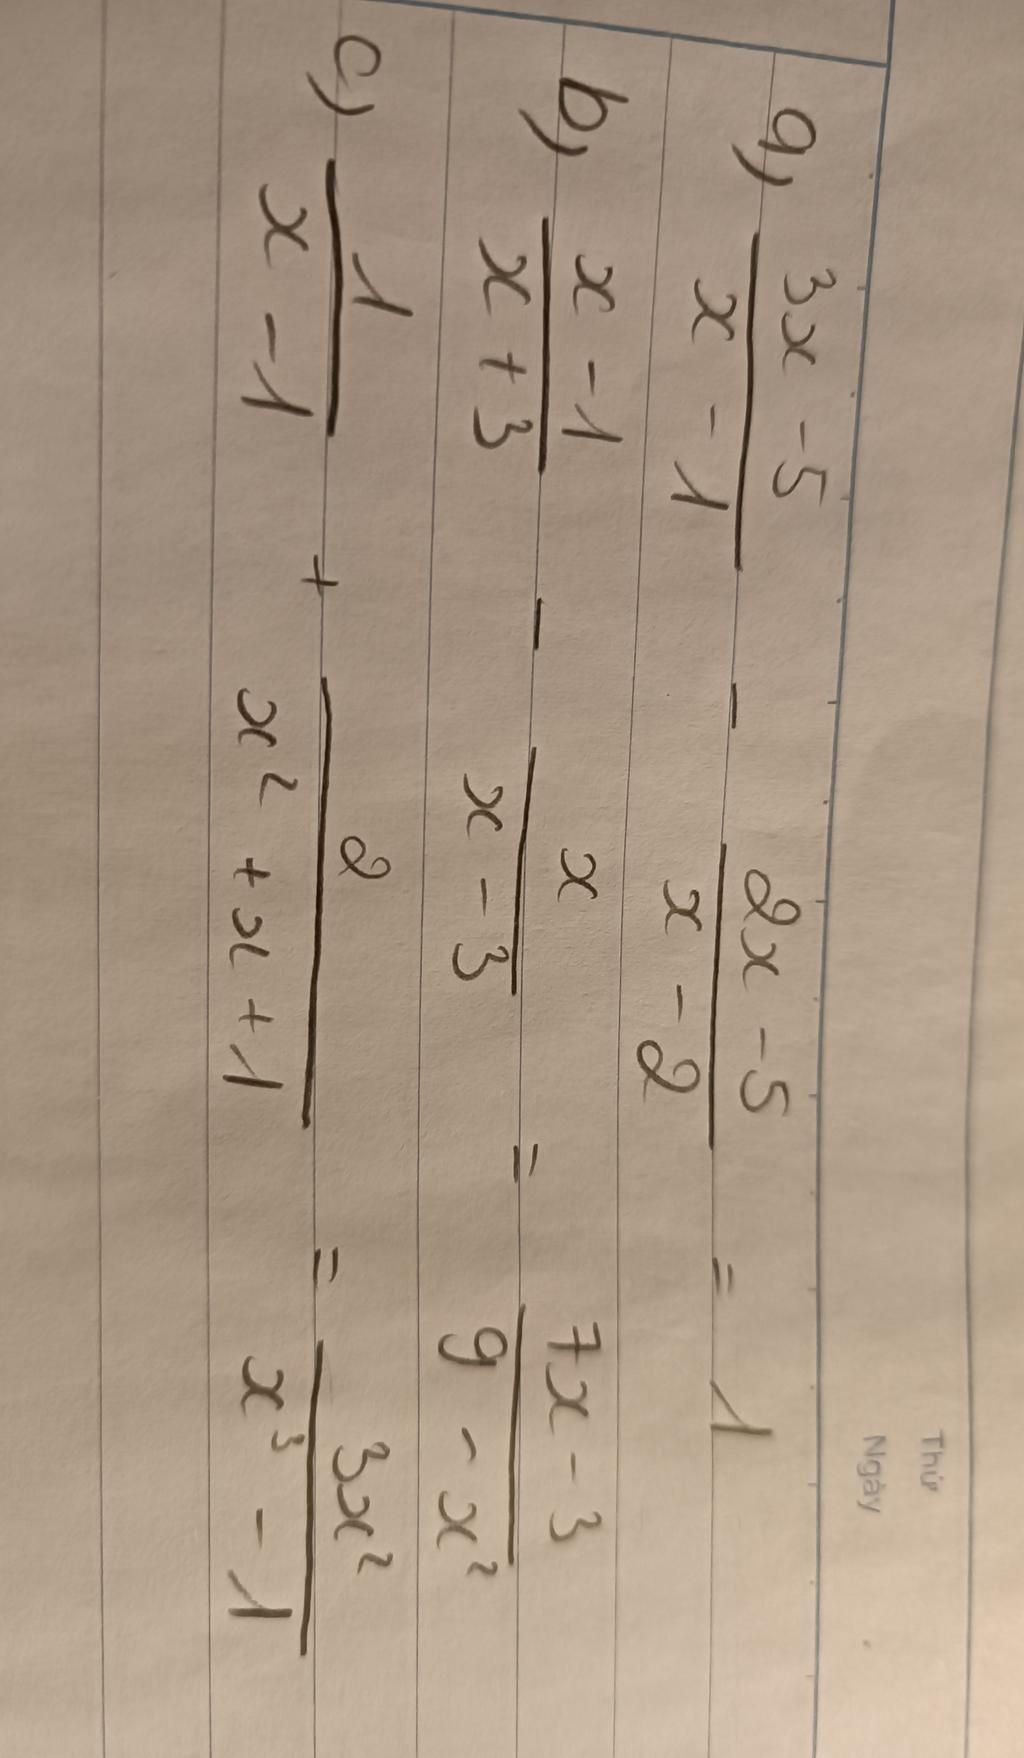 Thứ
Ngày
a, \frac{3x - 5}{x - 1} - \frac{2x - 5}{x - 2} = 1
b, \frac{x - 1}{x + 3} - \frac{x}{x - 3} = \frac{7x - 3}{9 - x²}
c, \frac{1}{x - 1} + \frac{2}{x² + x + 1} = \frac{3x²}{x³ - 1}